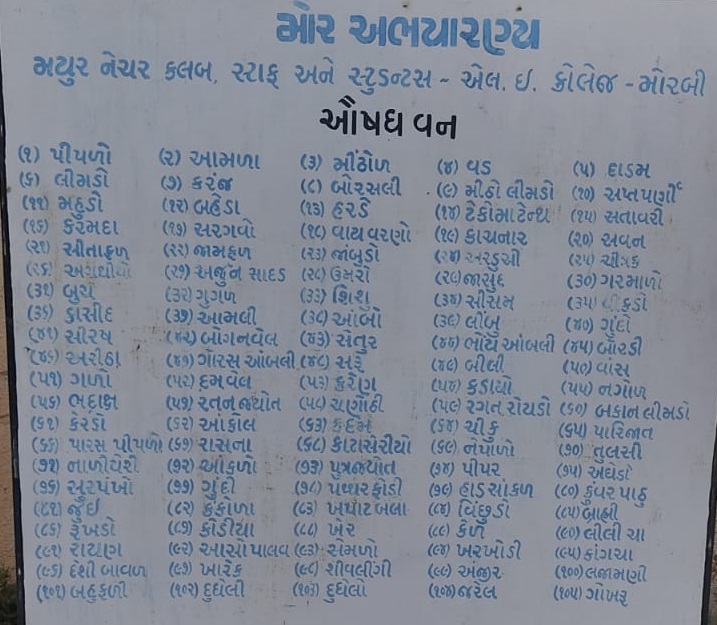 મોર અભયારણ્ય
મયુર નેચર કલબ, સ્ટાફ અને સ્ટુડન્ટસ - એલ. ઇ. કોલેજ - મોરબી
ઔષધ વન
(૧) પીપળો (૨) આમળા (૩) મીંઢોળ (૪) વડ (૫) દાડમ
(૬) લીમડો (૭) કરંજ (૮) બોરસલી (૯) મીઠો લીમડો (૧૦) સપ્તપર્ણી
(૧૧) મહુડો (૧૨) બહેડા (૧૩) હરડે (૧૪) ટેકોમા ટેન્થા (૧૫) સતાવરી
(૧૬) કરમદા (૧૭) સરગવો (૧૮) વાયવરણો (૧૯) કાચનાર (૨૦) અવન
(૨૧) સીતાફળ (૨૨) જામફળ (૨૩) જાંબુડો (૨૪) અરડુસી (૨૫) ચીત્રક
(૨૬) (૨૭) અર્જુન સાદડ (૨૮) ઉમરો (૨૯) જાસુદ (૩૦) ગરમાળો
(૩૧) બુચ (૩૨) ગુગળ (૩૩) શિશુ (૩૪) સીસમ (૩૫)
(૩૬) કાસીદ (૩૭) આમલી (૩૮) આંબો (૩૯) લીંબુ (૪૦) ગુંદો
(૪૧) સીરષ (૪૨) બોગનવેલ (૪૩) સેતુર (૪૪) ભોંય આંબલી (૪૫) બોરડી
(૪૬) અરીઠા (૪૭) ગોરસ આંબલી (૪૮) સરૂ (૪૯) બીલી (૫૦) વાંસ
(૫૧) ગળો (૫૨) દમવેલ (૫૩) કરેણ (૫૪) કડાયો (૫૫) નગોળ
(૫૬) ભદ્રાક્ષ (૫૭) રતન જ્યોત (૫૮) ચણોઠી (૫૯) રગત રોયડો (૬૦) બકાન લીમડો
(૬૧) કેરડો (૬૨) આકોલ (૬૩) કદમ (૬૪) ચીકુ (૬૫) પારિજાત
(૬૬) પારસ પીપળો (૬૭) રાસના (૬૮) કાટાસેરીયો (૬૯) નેપાળો (૭૦) તુલસી
(૭૧) નાળીયેરી (૭૨) આંકળો (૭૩) પુત્રજ્યોત (૭૪) પીપર (૭૫) અઘેડો
(૭૬) સુરપંખો (૭૭) ગુંદી (૭૮) પથ્થર ફોડી (૭૯) હાડ સાંકળ (૮૦) કુંવર પાઠુ
(૮૧) જુઇ (૮૨) કંકોળા (૮૩) ખપાટ બલા (૮૪) વિંછુડો (૮૫) બ્રાહ્મી
(૮૬) રૂખડો (૮૭) કોડીયા (૮૮) ખેર (૮૯) કેળ (૯૦) લીલી ચા
(૯૧) રાયણ (૯૨) આસો પાલવ (૯૩) સમળો (૯૪) ખરખોડી (૯૫) કાંગચા
(૯૬) દેશી બાવળ (૯૭) ખારેક (૯૮) શીવલીંગી (૯૯) અંજીર (૧૦૦) લજામણી
(૧૦૧) બહુફળી (૧૦૨) દુધેલી (૧૦૩) દુધેલો (૧૦૪) જરેલ (૧૦૫) ગોખરૂ